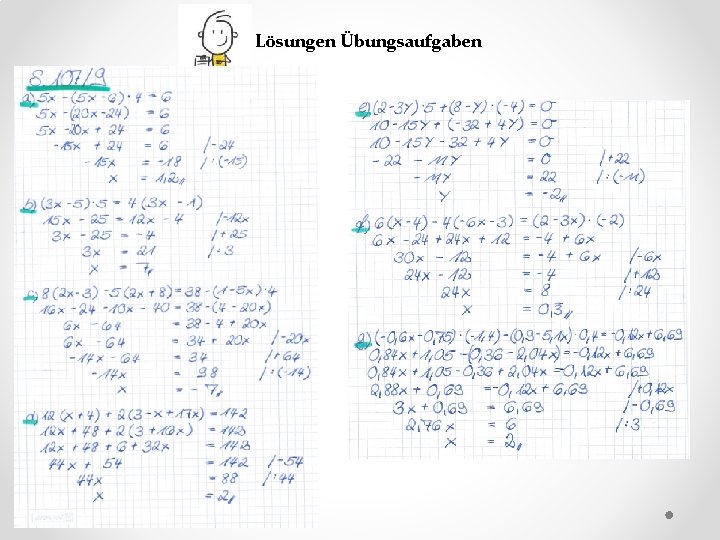 Lösungen Übungsaufgaben
S. 107/9
a) 5x - (5x - 6) · 4 = 6
5x - (20x - 24) = 6
5x - 20x + 24 = 6
-15x + 24 = 6 /-24
-15x = -18 /:(-15)
x = 1,2
b) (3x - 5) · 5 = 4 (3x - 1)
15x - 25 = 12x - 4 /-12x
3x - 25 = -4 /+25
3x = 21 /:3
x = 7
c) 8(2x-3) - 5(2x+8) = 38 - (1-5x) · 4
16x - 24 - 10x - 40 = 38 - (4 - 20x)
6x - 64 = 38 - 4 + 20x
6x - 64 = 34 + 20x /-20x
-14x - 64 = 34 /+64
-14x = 98 /:(-14)
x = -7
d) 12(x+4) + 2(3-x+17x) = 142
12x + 48 + 2(3+16x) = 142
12x + 48 + 6 + 32x = 142
44x + 54 = 142 /-54
44x = 88 /:44
x = 2
e) (2-3Y) · 5 + (8-Y) · (-4) = 0
10 - 15Y + (-32 + 4Y) = 0
10 - 15Y - 32 + 4Y = 0
-22 - 11Y = 0 /+22
-11Y = 22 /:(-11)
Y = -2
f) 6(x-4) - 4(-6x-3) = (2-3x) · (-2)
6x - 24 + 24x + 12 = -4 + 6x
30x - 12 = -4 + 6x /-6x
24x - 12 = -4 /+12
24x = 8 /:24
x = 0,3
g) (-0,6x-0,75) · (-1,4) - (0,9-5,1x) · 0,4 = -0,12x + 6,69
0,84x + 1,05 - (0,36 - 2,04x) = -0,12x + 6,69
0,84x + 1,05 - 0,36 + 2,04x = -0,12x + 6,69
2,88x + 0,69 = -0,12x + 6,69 /+0,12x
3x + 0,69 = 6,69 /-0,69
2,76x = 6 /:3
x = 2